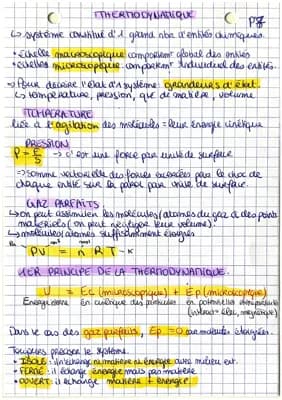 THERMODYNAMIQUE
↳ système constitué d'1 grand nbre d'entités chimiques.
• échelle macroscopique comportement global des entités
• échelles microscopique : comportement individuel des entités.
↳ Pour décrire l'état d'1 système grandeurs d'état.
↳ température, pression, qté de matière, volume
TEMPERATURE
liée à l'agitation des molécules = leur énergie cinétique
PRESSION
P = F/S → c'est une force par unité de surface
↳ somme vectorielle des forces exercées par le choc de
chaque entité sur la paroi par unité de surface.
GAZ PARFAITS
↳ on peut assimiler les molécules/atomes du gaz à des points
matériels (on peut négliger leur volume).
↳ molécules/atomes suffisamment éloignés
PV = n R T
Pa m³ mol K
1ER PRINCIPE DE LA THERMODYNAMIQUE.
U = Ec (microscopique) + Ep (microscopique)
Dans le cas des gaz parfaits, Ep = 0 car molécules éloignées.
Toujours préciser le système
• ISOLÉ : il n'échange ni matière ni énergie avec milieu ext.
• FERMÉ : il échange énergie mais pas matière
• OUVERT : il échange matière + énergie.